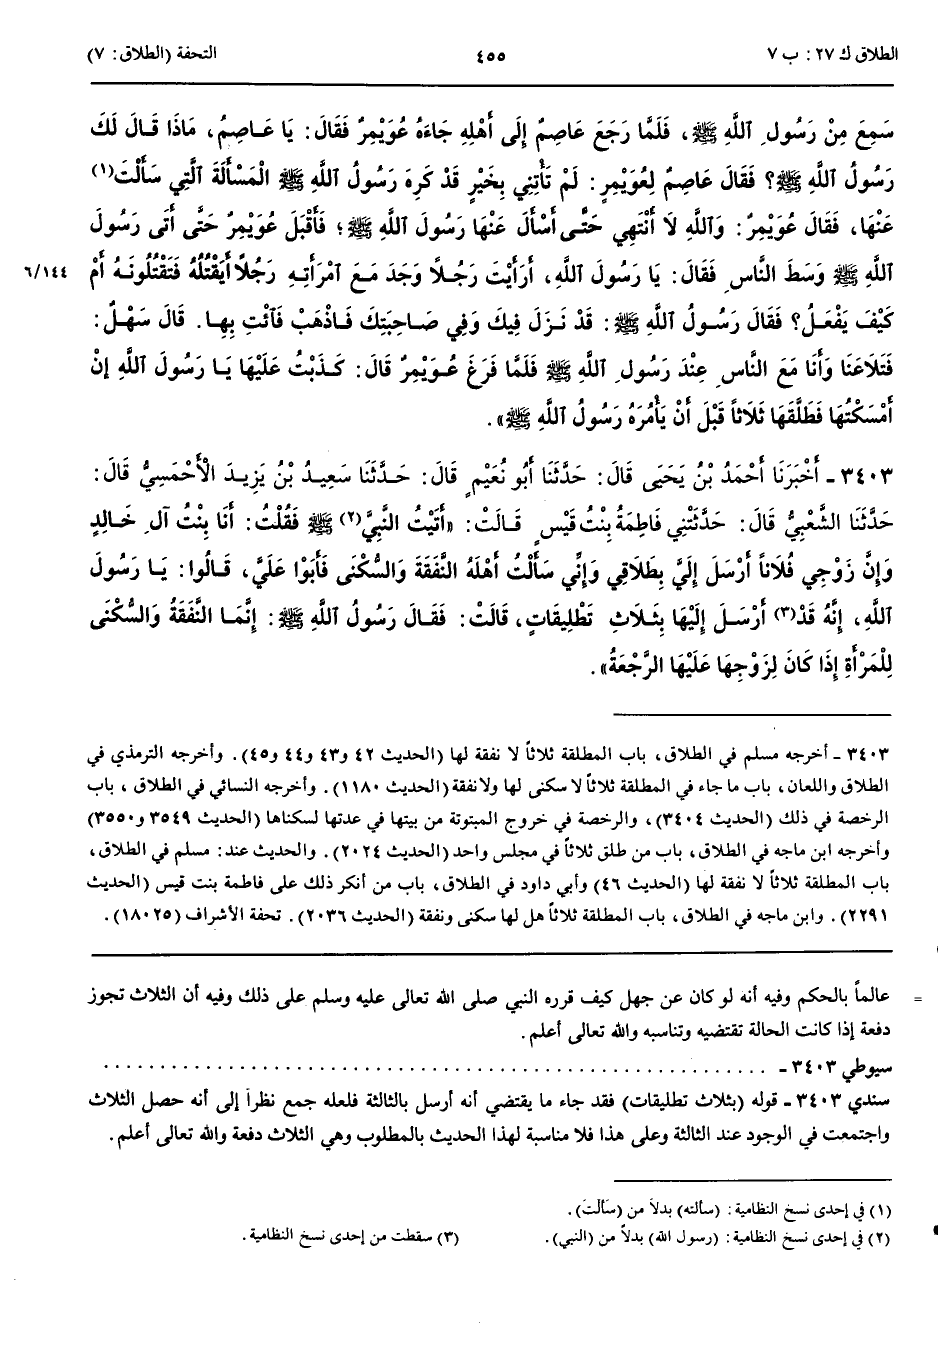 الطلاق ك ٢٧ : ب ٧
٤٥٥
التحفة (الطلاق : ٧)
سَمِعَ مِنْ رَسُولِ ٱللَّهِ ﷺ، فَلَمَّا رَجَعَ عَاصِمٌ إِلَى أَهْلِهِ جَاءَهُ عُوَيْمِرٌ فَقَالَ: يَا عَاصِمُ، مَاذَا قَالَ لَكَ
رَسُولُ ٱللَّهِ ﷺ؟ فَقَالَ عَاصِمٌ لِعُوَيْمِرٍ: لَمْ تَأْتِنِي بِخَيْرٍ قَدْ كَرِهَ رَسُولُ ٱللَّهِ ﷺ الْمَسْأَلَةَ ٱلَّتِي سَأَلْتَ(١)
عَنْهَا، فَقَالَ عُوَيْمِرٌ: وَٱللَّهِ لَا أَنْتَهِي حَتَّى أَسْأَلَ عَنْهَا رَسُولَ ٱللَّهِ ﷺ؛ فَأَقْبَلَ عُوَيْمِرٌ حَتَّى أَتَى رَسُولَ
ٱللَّهِ ﷺ وَسَطَ النَّاسِ فَقَالَ: يَا رَسُولَ ٱللَّهِ، أَرَأَيْتَ رَجُلاً وَجَدَ مَعَ ٱمْرَأَتِهِ رَجُلاً أَيَقْتُلُهُ فَتَقْتُلُونَهُ أَمْ
٦/١٤٤
كَيْفَ يَفْعَلُ؟ فَقَالَ رَسُولُ ٱللَّهِ ﷺ: قَدْ نَزَلَ فِيكَ وَفِي صَاحِبَتِكَ فَاذْهَبْ فَأْتِ بِهَا. قَالَ سَهْلٌ:
فَتَلَاعَنَا وَأَنَا مَعَ النَّاسِ عِنْدَ رَسُولِ ٱللَّهِ ﷺ فَلَمَّا فَرَغَ عُوَيْمِرٌ قَالَ: كَذَبْتُ عَلَيْهَا يَا رَسُولَ ٱللَّهِ إِنْ
أَمْسَكْتُهَا فَطَلَّقَهَا ثَلَاثاً قَبْلَ أَنْ يَأْمُرَهُ رَسُولُ ٱللَّهِ ﷺ».
٣٤٠٣ ـ أَخْبَرَنَا أَحْمَدُ بْنُ يَحْيَى قَالَ: حَدَّثَنَا أَبُو نُعَيْمٍ قَالَ: حَدَّثَنَا سَعِيدُ بْنُ يَزِيدَ الْأَحْمَسِيُّ قَالَ:
حَدَّثَنَا الشَّعْبِيُّ قَالَ: حَدَّثَتْنِي فَاطِمَةُ بِنْتُ قَيْسٍ قَالَتْ: «أَتَيْتُ النَّبِيَّ(٢) ﷺ فَقُلْتُ: أَنَا بِنْتُ آلِ خَالِدٍ
وَإِنَّ زَوْجِي فُلَاناً أَرْسَلَ إِلَيَّ بِطَلَاقِي وَإِنِّي سَأَلْتُ أَهْلَهُ النَّفَقَةَ وَالسُّكْنَى فَأَبَوْا عَلَيَّ، قَالُوا: يَا رَسُولَ
ٱللَّهِ، إِنَّهُ قَدْ(٣) أَرْسَلَ إِلَيْهَا بِثَلَاثِ تَطْلِيقَاتٍ، قَالَتْ: فَقَالَ رَسُولُ ٱللَّهِ ﷺ: إِنَّمَا النَّفَقَةُ وَالسُّكْنَى
لِلْمَرْأَةِ إِذَا كَانَ لِزَوْجِهَا عَلَيْهَا الرَّجْعَةُ».
٣٤٠٣ ـ أخرجه مسلم في الطلاق، باب المطلقة ثلاثاً لا نفقة لها (الحديث ٤٢ و٤٣ و٤٤ و٤٥). وأخرجه الترمذي في
الطلاق واللعان، باب ما جاء في المطلقة ثلاثاً لا سكنى لها ولا نفقة (الحديث ١١٨٠). وأخرجه النسائي في الطلاق، باب
الرخصة في ذلك (الحديث ٣٤٠٤)، والرخصة في خروج المبتوتة من بيتها في عدتها لسكناها (الحديث ٣٥٤٩ و٣٥٥٠)
وأخرجه ابن ماجه في الطلاق، باب من طلق ثلاثاً في مجلس واحد (الحديث ٢٠٢٤). والحديث عند: مسلم في الطلاق،
باب المطلقة ثلاثاً لا نفقة لها (الحديث ٤٦) وأبي داود في الطلاق، باب من أنكر ذلك على فاطمة بنت قيس (الحديث
٢٢٩١). وابن ماجه في الطلاق، باب المطلقة ثلاثاً هل لها سكنى ونفقة (الحديث ٢٠٣٦). تحفة الأشراف (١٨٠٢٥).
= عالماً بالحكم وفيه أنه لو كان عن جهل كيف قرره النبي صلى الله تعالى عليه وسلم على ذلك وفيه أن الثلاث تجوز
دفعة إذا كانت الحالة تقتضيه وتناسبه والله تعالى أعلم.
سيوطي ٣٤٠٣ ـ . . . . . . . . . . . . . . . . . . . . . . . . . . . . . . . . . . . . . . . .
سندي ٣٤٠٣ ـ قوله (بثلاث تطليقات) فقد جاء ما يقتضي أنه أرسل بالثالثة فلعله جمع نظراً إلى أنه حصل الثلاث
واجتمعت في الوجود عند الثالثة وعلى هذا فلا مناسبة لهذا الحديث بالمطلوب وهي الثلاث دفعة والله تعالى أعلم.
(١) في إحدى نسخ النظامية: (سألته) بدلاً من (سَألْتَ).
(٢) في إحدى نسخ النظامية: (رسول الله) بدلاً من (النبي).
(٣) سقطت من إحدى نسخ النظامية.